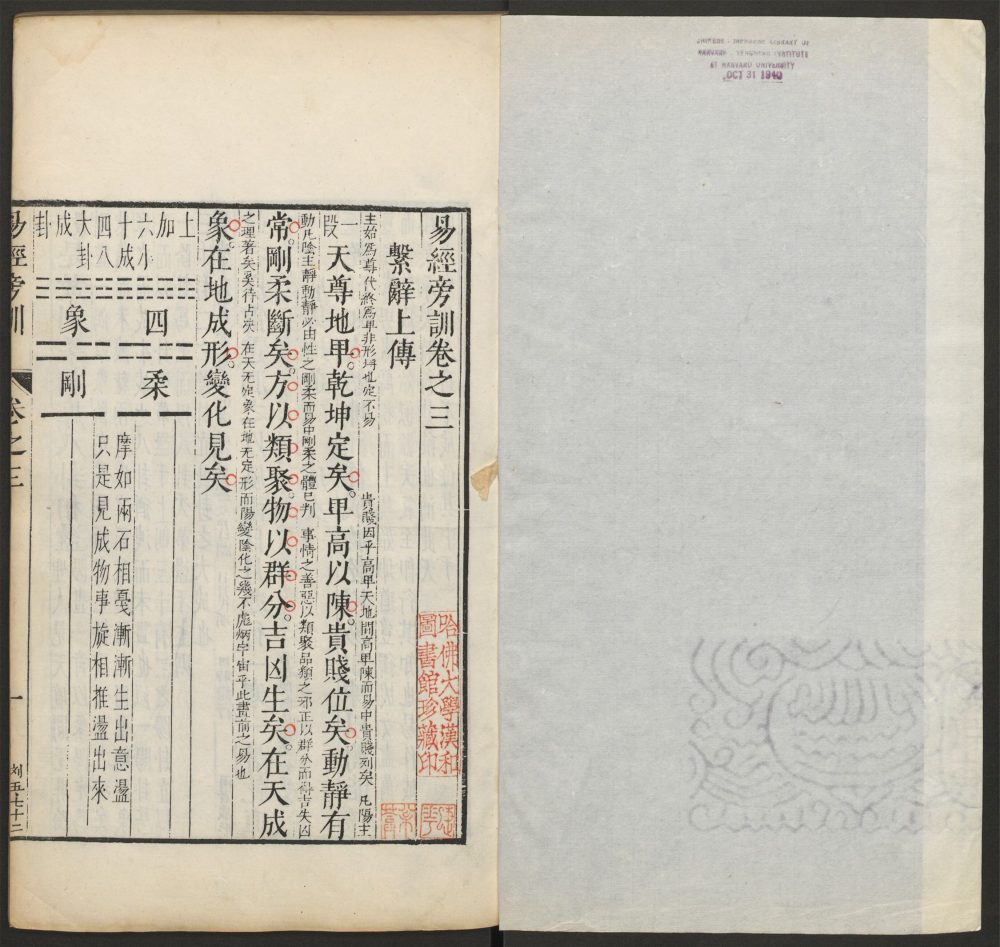 OCT 31 1940
易經旁訓卷之三
哈佛大學漢和
圖書館珍藏印
繫辭上傳
主始爲尊代終爲卑非形埒也定不易 貴賤因乎高卑天地間高卑陳而易中貴賤列矣 凡陽主
一段 天尊地卑乾坤定矣卑高以陳貴賤位矣動靜有
動凡陰主靜動靜必由性之剛柔而易中剛柔之體已判 事情之善惡以類聚品類之邪正以群分而得吉失凶
常剛柔斷矣方以類聚物以群分吉凶生矣在天成
之理著矣奚待占爻 在天无定象在地无定形而陽變陰化之幾不處炳宇宙乎此畫前之易也
象在地成形變化見矣
上加
六小
十成
四八
大卦
成
卦
四象
柔剛
摩如兩石相戞漸漸生出意盪
只是見成物事旋相推盪出來
易經旁訓 卷之三 一
刘五七十二